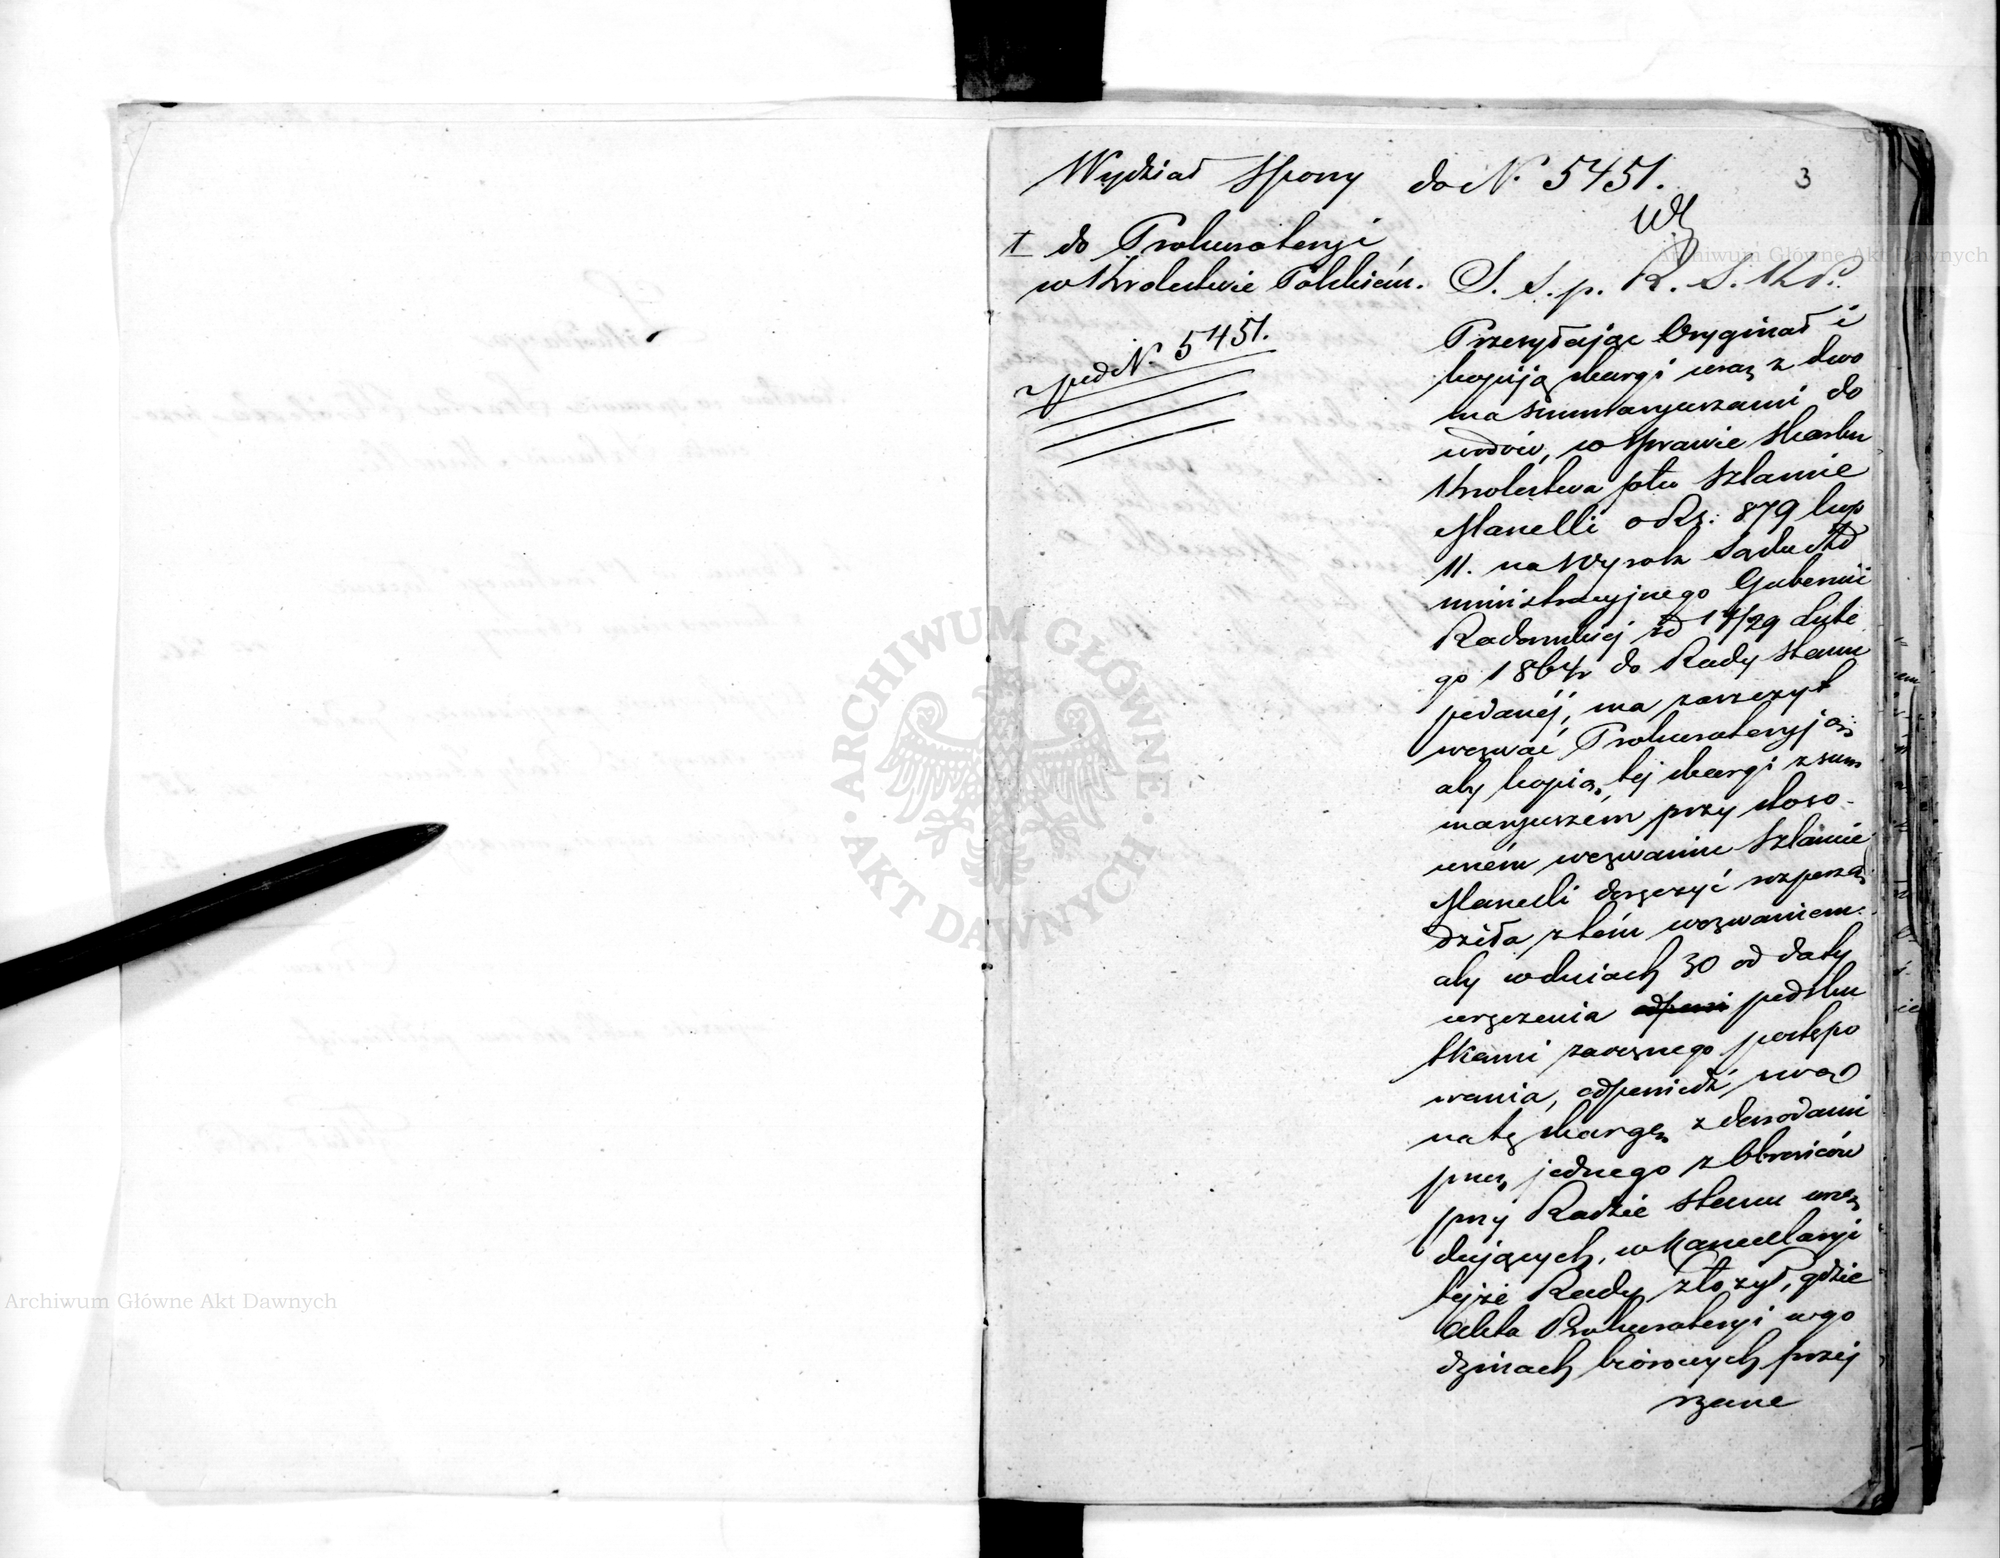 Wydział Sporny do N. 5451.
3
do Prokuratoryi
w Królestwie Polskiém.
pod N. 5451.
S. S. p. R. S. K. P.
Przesyłając Oryginał i
kopiją skargi wraz z dwo
ma summaryuszami do
wodów, w sprawie Skarbu
Królestwa pko Szlamie
Manelli o Rs: 879 kop
11. na Wyrok Sądu Ad
ministracyjnego Gubernii
Radomskiej z d 17/29 Lute
go 1864 r do Rady Stanu
podanéj, ma zaszczyt
wezwać Prokuratoryją
aby kopią téj skargi z sum
maryuszém przy stoso-
wném wezwaniu Szlamie
Manelli doręczyć rozporzą
dziła z tém wezwaniem
aby w dniach 30 od daty
wręczenia pod sku
tkami zaocznego postępo
wania, odpowiedź swą
na tę skargę z dowodami
przez jednego z Obrońców
przy Radzie Stanu urzę
dujących, w Kancellaryi
tejże Rady złożył, gdzie
akta Prokuratoryi w go
dzinach biórowych przej
rzane
Archiwum Główne Akt Dawnych
ARCHIWUM GŁÓWNE
AKT DAWNYCH
Archiwum Główne Akt Dawnych